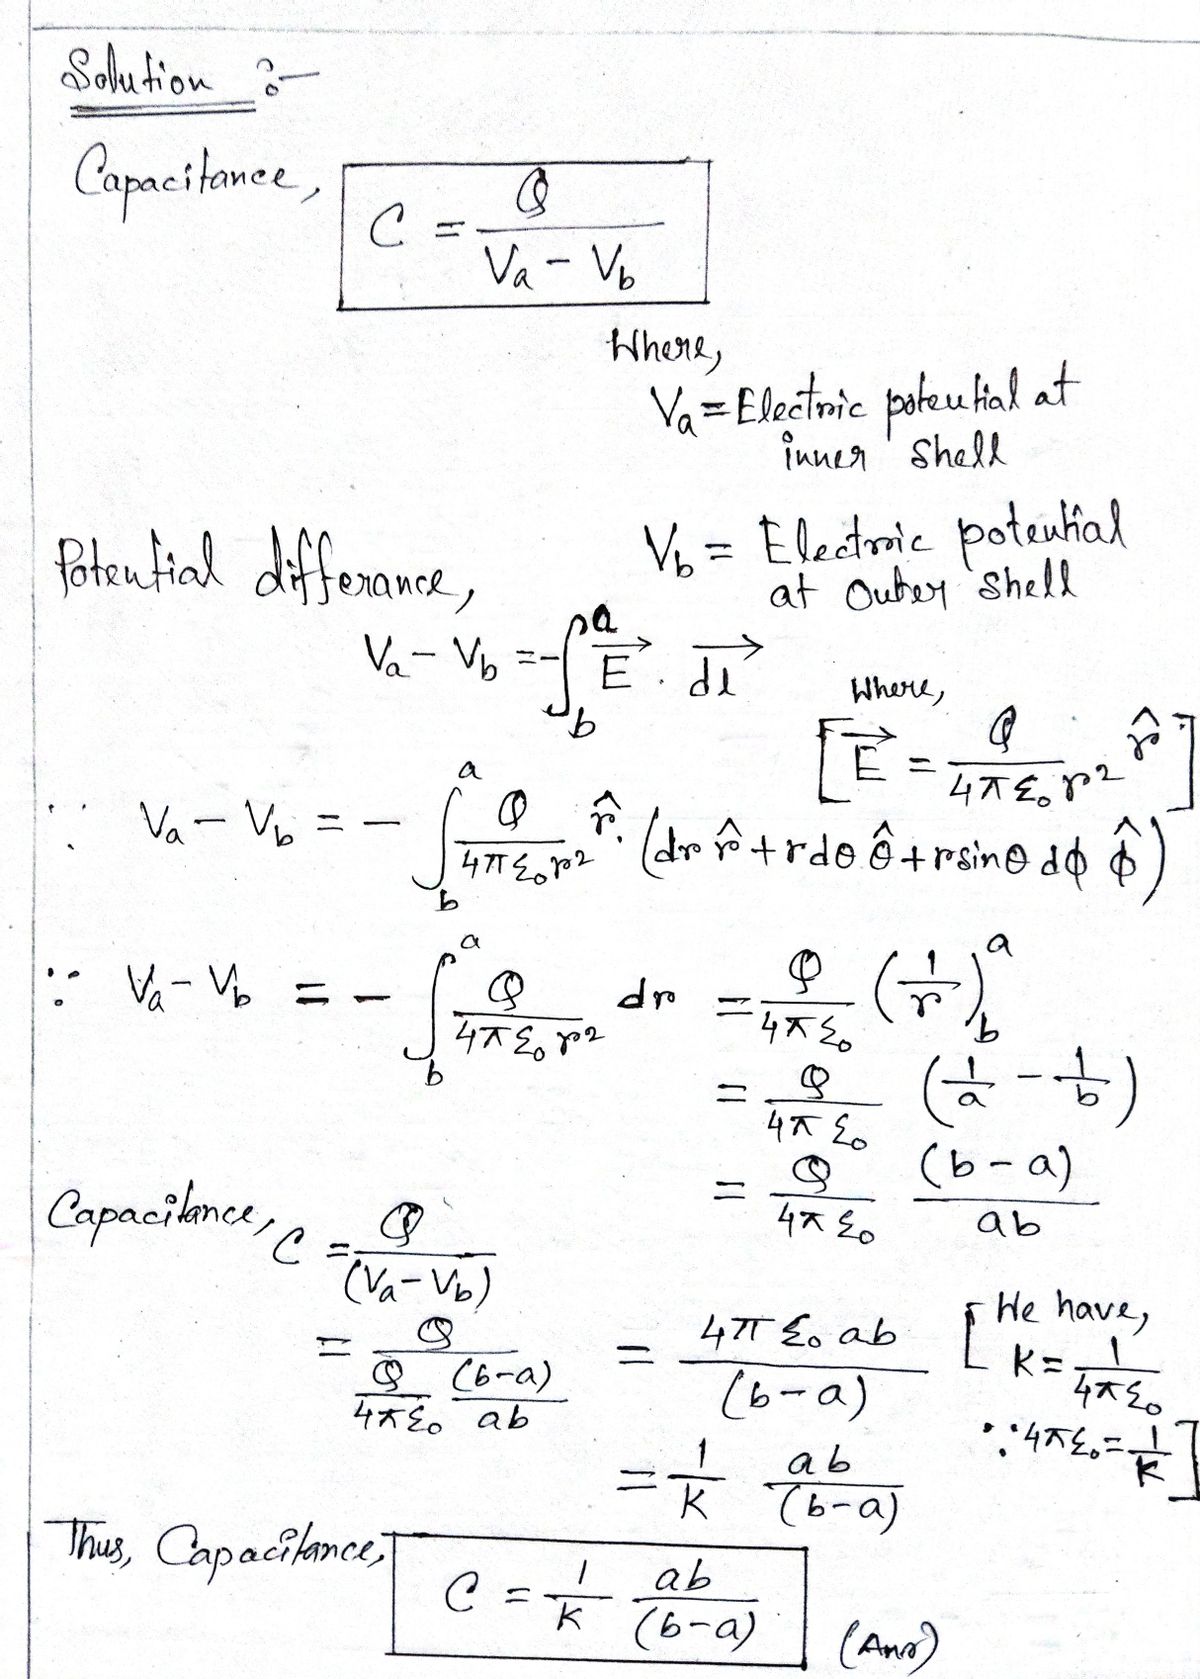 Solution :-
Capacitance, C = Q / (Va - Vb)
Where,
Va = Electric potential at
inner shell
Vb = Electric potential
at outer shell
Potential differance,
Va - Vb = - ∫_b^a E⃗ . dl⃗
Where,
[E⃗ = Q / (4πε₀r²) r̂]
∵ Va - Vb = - ∫_b^a Q / (4πε₀r²) r̂. (dr r̂ + rdθ θ̂ + rsinθ dϕ ϕ̂)
∵ Va - Vb = - ∫_b^a Q / (4πε₀r²) dr = Q / (4πε₀) (1/r)_b^a
= Q / (4πε₀) (1/a - 1/b)
= Q / (4πε₀) (b-a) / ab
Capacitance, C = Q / (Va - Vb)
= Q / (Q / (4πε₀) (b-a) / ab) = 4πε₀ab / (b-a)
[We have,
K = 1 / (4πε₀)
∵ 4πε₀ = 1/K]
= 1/K ab / (b-a)
Thus, Capacitance, C = 1/K ab / (b-a) (Ans)